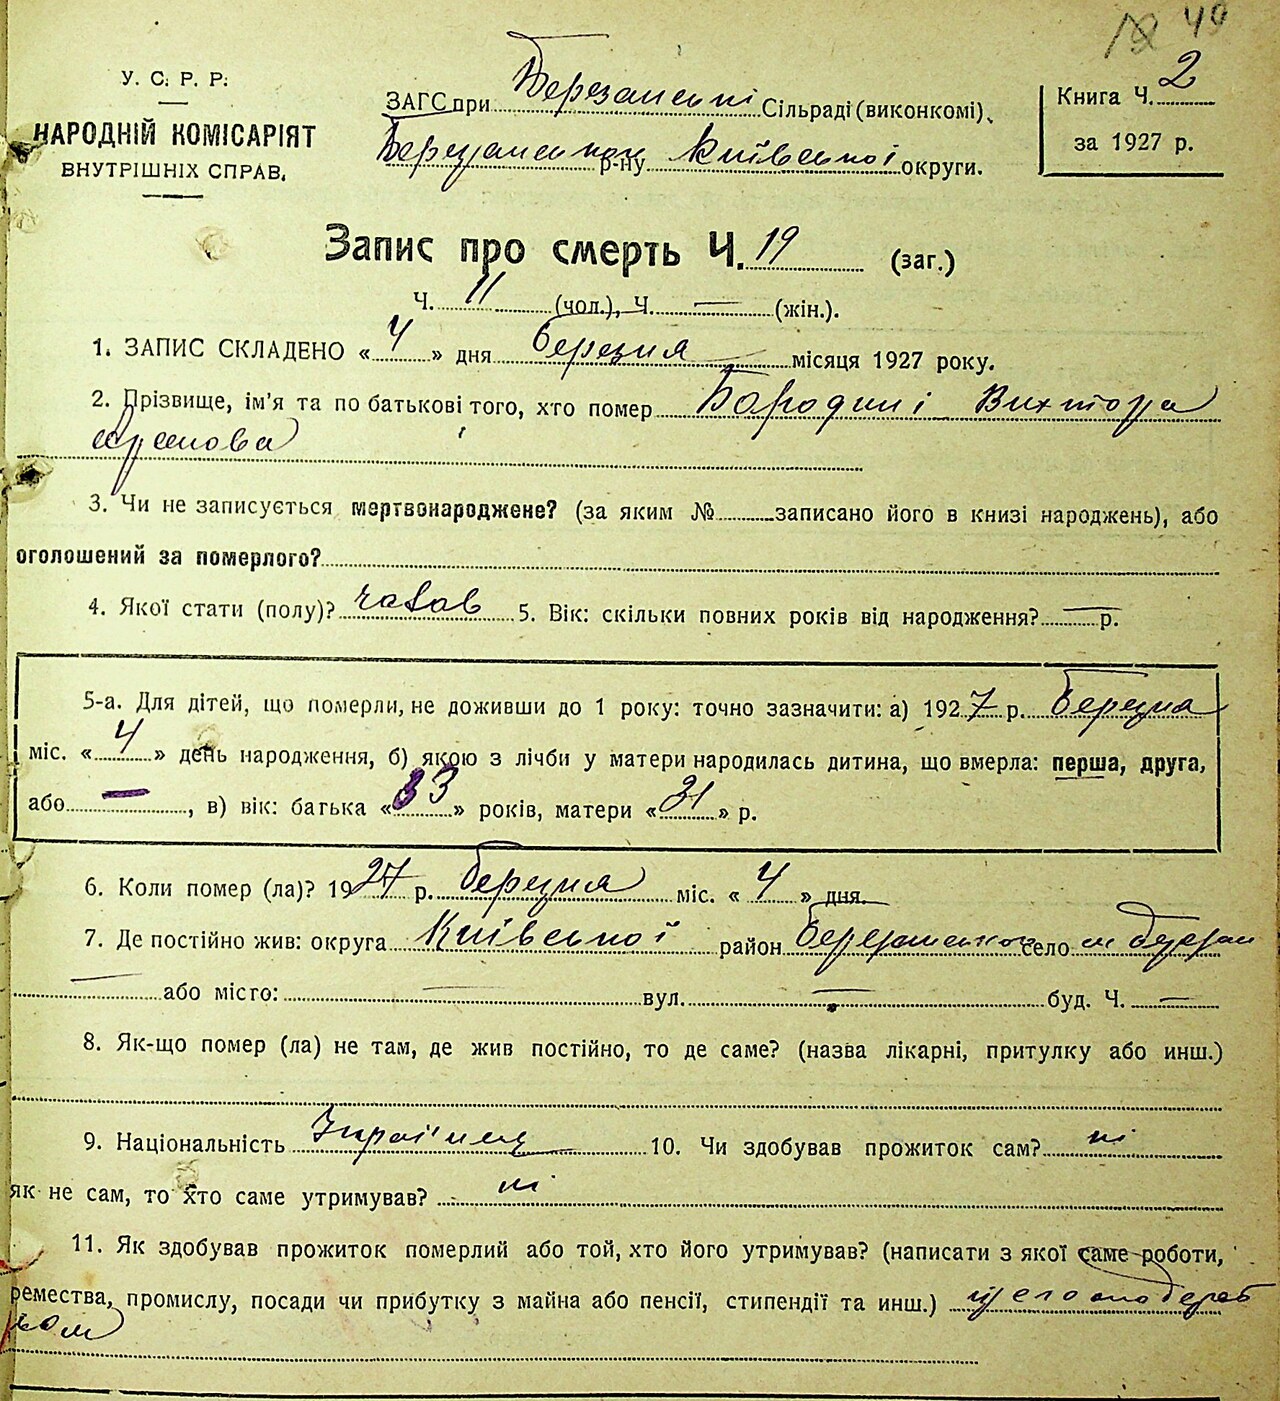 49
У. С. Р. Р.
НАРОДНІЙ КОМІСАРІЯТ
ВНУТРІШНІХ СПРАВ.
ЗАГС при Березанські Сільраді (виконкомі),
Березанського р-ну Київської округи.
Книга Ч. 2
за 1927 р.
Запис про смерть Ч. 19 (заг.)
Ч. 11 (чол.), Ч. — (жін.).
1. ЗАПИС СКЛАДЕНО « 4 » дня березня місяця 1927 року.
2. Прізвище, ім'я та по батькові того, хто помер Бородині Виктора
3. Чи не записується мертвонароджене? (за яким № записано його в книзі народжень), або
оголошений за померлого?
4. Якої стати (полу)? чолов 5. Вік: скільки повних років від народження? — р.
5-а. Для дітей, що померли, не доживши до 1 року: точно зазначити: а) 1927 р. березня
міс. « 4 » день народження, б) якою з лічби у матери народилась дитина, що вмерла: перша, друга,
або —, в) вік: батька « 33 » років, матери « 31 » р.
6. Коли помер (ла)? 1927 р. березня міс. « 4 » дня.
7. Де постійно жив: округа Київської район Березанського село м Березан
— або місто: — вул. — буд. Ч. —
8. Як-що помер (ла) не там, де жив постійно, то де саме? (назва лікарні, притулку або инш.)
9. Національність Україниц 10. Чи здобував прожиток сам? ні
як не сам, то хто саме утримував? ні
11. Як здобував прожиток померлий або той, хто його утримував? (написати з якої саме роботи,
ремества, промислу, посади чи прибутку з майна або пенсії, стипендії та инш.)